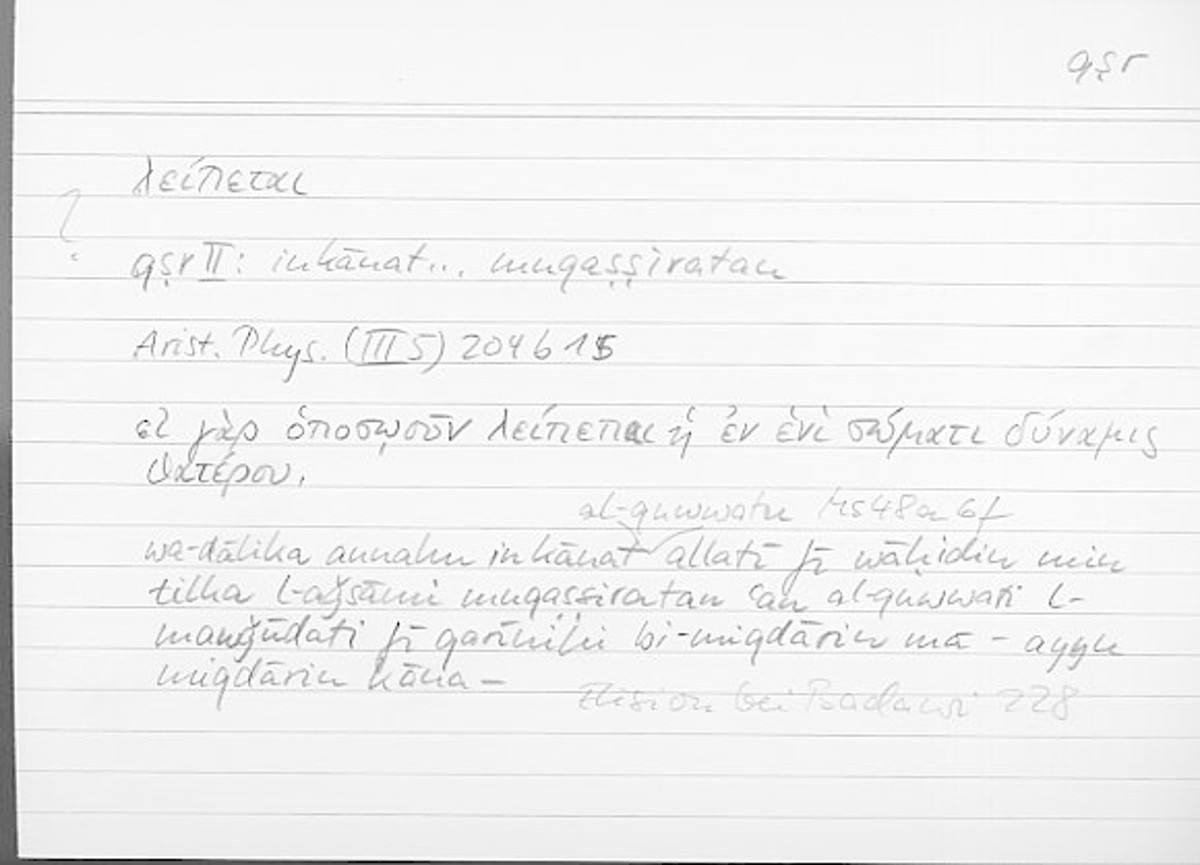 qṣr
λείπεται
?
qṣr II: in kānat... muqaṣṣiratan
Arist. Phys. (III 5) 204 b 15
εἰ γὰρ ὁποσῳοῦν λείπεται ἡ ἐν ἑνὶ σώματι δύναμις
θατέρου,
al-quwwatu Hs 48a 6f
wa-ḏālika annahu in kānat allatī fī wāḥidin min
tilka l-aǧsāmi muqaṣṣiratan ʿan al-quwwati l-
mawǧūdati fī qarīnihi bi-miqdārin mā – ayyu
miqdārin kāna –
Elision bei Badawi 228